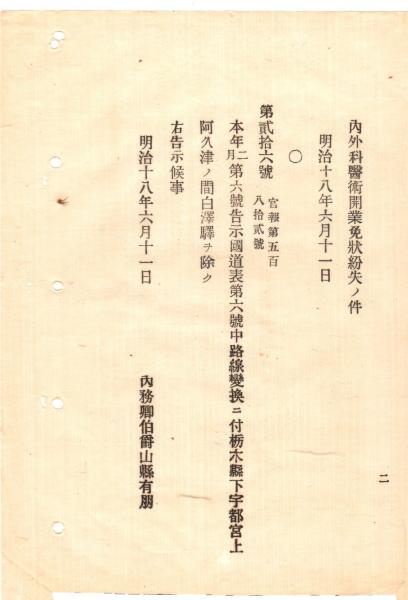 二
內外科醫術開業免狀紛失ノ件
明治十八年六月十一日
〇
第貳拾六號 官報第五百八拾貳號
本年二月第六號告示國道表第六號中路線變換ニ付栃木縣下宇都宮上
阿久津ノ間白澤驛ヲ除ク
右告示候事
明治十八年六月十一日 內務卿伯爵山縣有朋